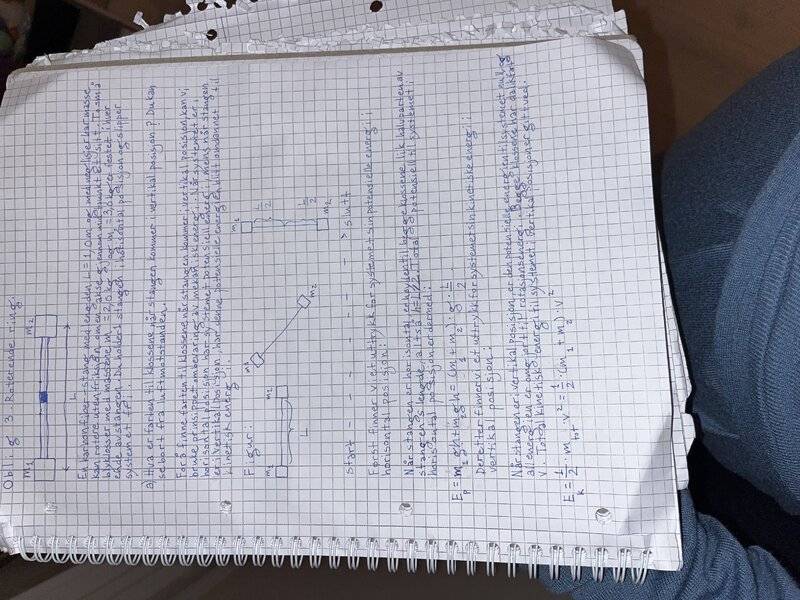 Oblig 3. Roterende ring:
m1 m2
L
En karbonfiber-stang med lengden L = 1,0 m og med neglisjerbar masse
kan rotere uten friksjon om en fast akse gjennom midtpunktet sitt. To små
blyklosser med massene m1 = 2,0 kg og m2 = 3,0 kg er festet i hver
ende av stangen. Du holder stangen i horisontal posisjon og slipper
systemet fri.
a) Hva er farten til klossene når stangen kommer i vertikal posisjon? Du kan
se bort fra luftmotstanden.
For å finne farten til klossene når stangen kommer i vertikal posisjon kan vi
bruke prinsippet om bevaring av mekanisk energi. Når systemet er i
horisontal posisjon har systemet potensiell energi, mens når stangen
er i vertikal posisjon, har denne potensielle energien blitt omdannet til
kinetisk energi.
Figur:
m1 m2 L
m1 m2
m1 L/2 L/2 m2
start - - - - - - - - - > slutt
Først finner vi et uttrykk for systemet sin potensielle energi i
horisontal posisjon:
Når stangen er horisontal, er høyden til begge klossene lik halvparten av
stangen's lengde, altså h = L/2. Total potensiell til systemet i
horisontal posisjon er dermed:
Ep = m1gh + m2gh = (m1 + m2) · g · L/2
Deretter finner vi et uttrykk for systemet sin kinetiske energi i
vertikal posisjon:
Når stangen er i vertikal posisjon, er den potensielle energien til systemet null, og
all energien er omgjort til rotasjonsenergi. Begge klossene har da lik fart
v. Total kinetisk energi til systemet i vertikal posisjon er gitt ved:
Ek = 1/2 · mtot · v² = 1/2 · (m1 + m2) · v²